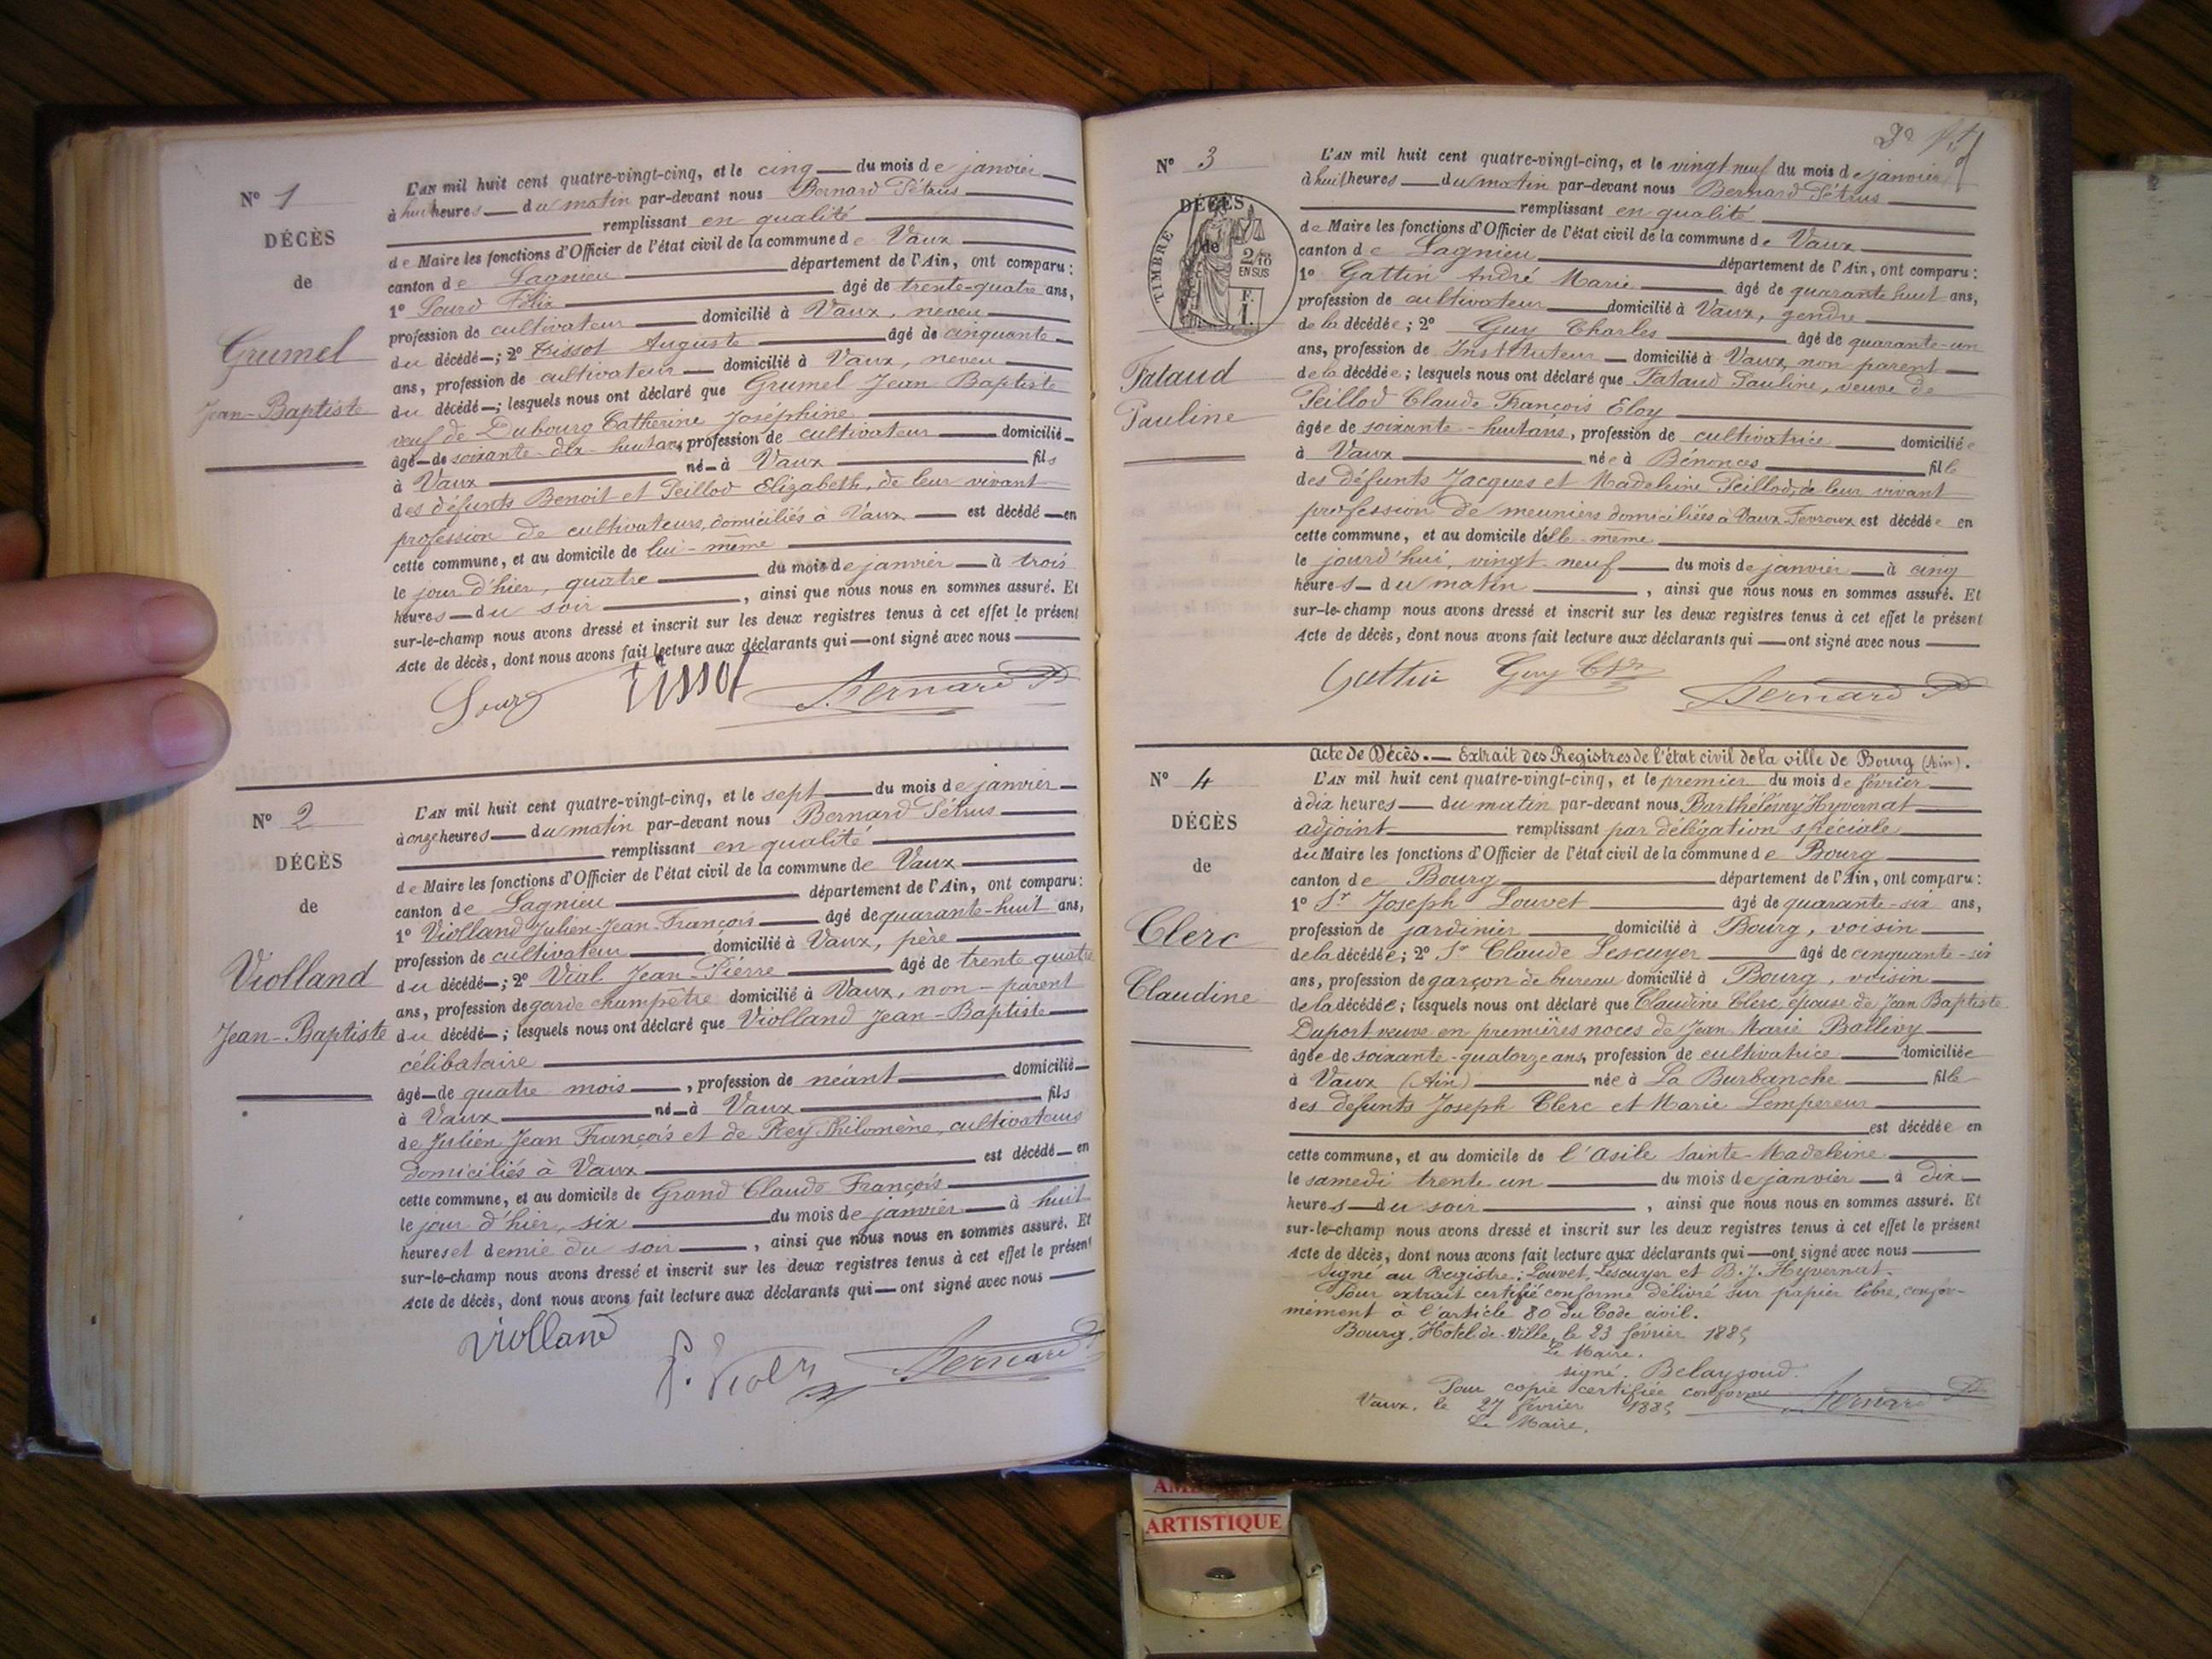 Nº 1
DÉCÈS
de
Grumel
Jean-Baptiste
L'AN mil huit cent quatre-vingt-cinq, et le cinq du mois de janvier
à huit heures du matin par-devant nous Bernard Pétrus
remplissant en qualité
de Maire les fonctions d'Officier de l'état civil de la commune de Vaux
canton de Lagnieu département de l'Ain, ont comparu :
1º Lourd Félix âgé de trente-quatre ans,
profession de cultivateur domicilié à Vaux, neveu
du décédé ; 2º Tissot Auguste âgé de cinquante
ans, profession de cultivateur domicilié à Vaux, neveu
du décédé ; lesquels nous ont déclaré que Grumel Jean Baptiste
veuf de Dubourg Catherine Joséphine
âgé de soixante-dix-huit ans, profession de cultivateur domicilié
à Vaux né à Vaux fils
des défunts Benoit et Peillod Elizabeth, de leur vivant
profession de cultivateurs, domiciliés à Vaux est décédé en
cette commune, et au domicile de lui-même
le jour d'hier, quatre du mois de janvier à trois
heures du soir, ainsi que nous nous en sommes assuré. Et
sur-le-champ nous avons dressé et inscrit sur les deux registres tenus à cet effet le présent
Acte de décès, dont nous avons fait lecture aux déclarants qui ont signé avec nous
Tissot Bernard P
Nº 2
DÉCÈS
de
Violland
Jean-Baptiste
L'AN mil huit cent quatre-vingt-cinq, et le sept du mois de janvier
à onze heures du matin par-devant nous Bernard Pétrus
remplissant en qualité
de Maire les fonctions d'Officier de l'état civil de la commune de Vaux
canton de Lagnieu département de l'Ain, ont comparu :
1º Violland Julien-Jean-François âgé de quarante-huit ans,
profession de cultivateur domicilié à Vaux, père
du décédé ; 2º Vial Jean-Pierre âgé de trente quatre
ans, profession de garde champêtre domicilié à Vaux, non-parent
du décédé ; lesquels nous ont déclaré que Violland Jean-Baptiste
célibataire
âgé de quatre mois, profession de néant domicilié
à Vaux né à Vaux fils
de Julien Jean François et de Rey Philomène, cultivateurs
domiciliés à Vaux est décédé en
cette commune, et au domicile de Grand Claude François
le jour d'hier, six du mois de janvier à huit
heures et demie du soir, ainsi que nous nous en sommes assuré. Et
sur-le-champ nous avons dressé et inscrit sur les deux registres tenus à cet effet le présent
Acte de décès, dont nous avons fait lecture aux déclarants qui ont signé avec nous
Violland
Bernard P
Nº 3
DÉCÈS
de
TIMBRE
2/10
EN SUS
Fataud
Pauline
L'AN mil huit cent quatre-vingt-cinq, et le vingt neuf du mois de janvier
à huit heures du matin par-devant nous Bernard Pétrus
remplissant en qualité
de Maire les fonctions d'Officier de l'état civil de la commune de Vaux
canton de Lagnieu département de l'Ain, ont comparu :
1º Gattin André Marie âgé de quarante huit ans,
profession de cultivateur domicilié à Vaux, gendre
de la décédée ; 2º Guy Charles âgé de quarante-un
ans, profession de Instituteur domicilié à Vaux, non parent
de la décédée ; lesquels nous ont déclaré que Fataud Pauline, veuve de
Peillod Claude François Eloy
âgée de soixante-huit ans, profession de cultivatrice domiciliée
à Vaux née à Bénonces fille
des défunts Jacques et Madeleine Peillod, de leur vivant
profession de meuniers domiciliées à Vaux Fevroux est décédée en
cette commune, et au domicile d'elle-même
le jourd'hui, vingt neuf du mois de janvier à cinq
heures du matin, ainsi que nous nous en sommes assuré. Et
sur-le-champ nous avons dressé et inscrit sur les deux registres tenus à cet effet le présent
Acte de décès, dont nous avons fait lecture aux déclarants qui ont signé avec nous
Gattin Guy Ch Bernard P
Acte de Décès. — Extrait des Registres de l'état civil de la ville de Bourg (Ain).
Nº 4
DÉCÈS
de
Clerc
Claudine
L'AN mil huit cent quatre-vingt-cinq, et le premier du mois de février
à dix heures du matin par-devant nous Barthélémy Hyvernat
adjoint remplissant par délégation spéciale
du Maire les fonctions d'Officier de l'état civil de la commune de Bourg
canton de Bourg département de l'Ain, ont comparu :
1º Sr Joseph Louvet âgé de quarante-six ans,
profession de jardinier domicilié à Bourg, voisin
de la décédée ; 2º Sr Claude Lescuyer âgé de cinquante-six
ans, profession de garçon de bureau domicilié à Bourg, voisin
de la décédée ; lesquels nous ont déclaré que Claudine Clerc, épouse de Jean Baptiste
Duport veuve en premières noces de Jean Marie Ballivy
âgée de soixante-quatorze ans, profession de cultivatrice domiciliée
à Vaux (Ain) née à La Burbanche fille
des défunts Joseph Clerc et Marie Lempereur
est décédée en
cette commune, et au domicile de l'Asile Sainte-Madeleine
le samedi trente un du mois de janvier à dix
heures du soir, ainsi que nous nous en sommes assuré. Et
sur-le-champ nous avons dressé et inscrit sur les deux registres tenus à cet effet le présent
Acte de décès, dont nous avons fait lecture aux déclarants qui ont signé avec nous
Signé au Registre : Louvet, Lescuyer et B. J. Hyvernat.
Pour extrait certifié conforme délivré sur papier libre, confor-
mément à l'article 80 du Code civil.
Bourg, Hôtel de Ville, le 23 février 1885
Le Maire.
signé. Belaysoud.
Pour copie certifiée conforme
Vaux, le 27 février 1885 Bernard P
Le Maire.
ARTISTIQUE